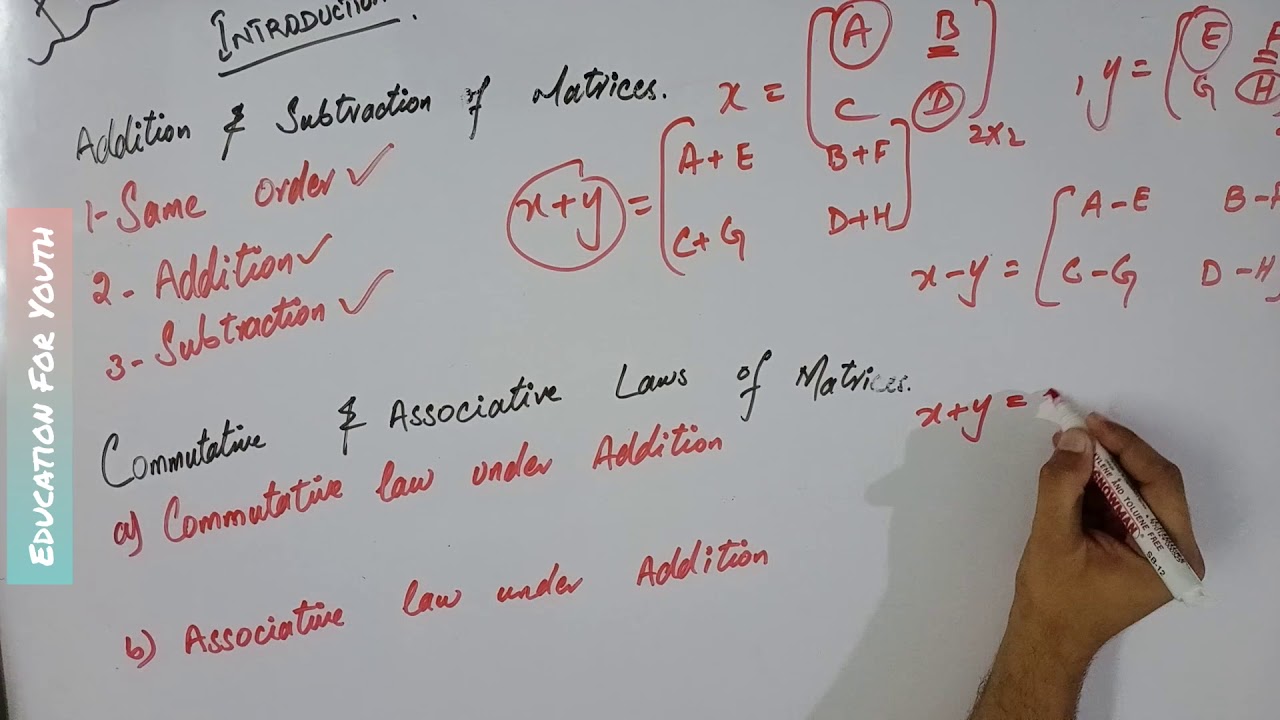 INTRODUCTION.
Addition & Subtraction of Matrices.
1- Same order ✓
2 - Addition ✓
3 - Subtraction ✓
x = [A B
C D] 2x2
, y = [E F
G H]
x+y = [A+E B+F
C+G D+H]
x-y = [A-E B-
C-G D-H
Commutative & Associative Laws of Matrices.
a) Commutative law under Addition
x+y =
b) Associative law under Addition
EDUCATION FOR YOUTH
SNOWMAN
XYLENE AND TOLUENE FREE